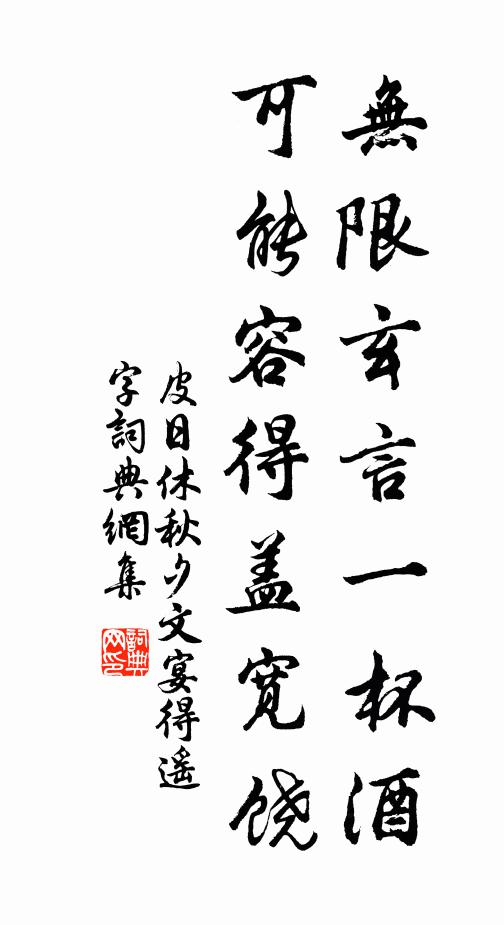 無限玄言一杯酒
可能容得盖寛饶
皮日休秋夕文宴得遥
字詞典網集
詞典
网印